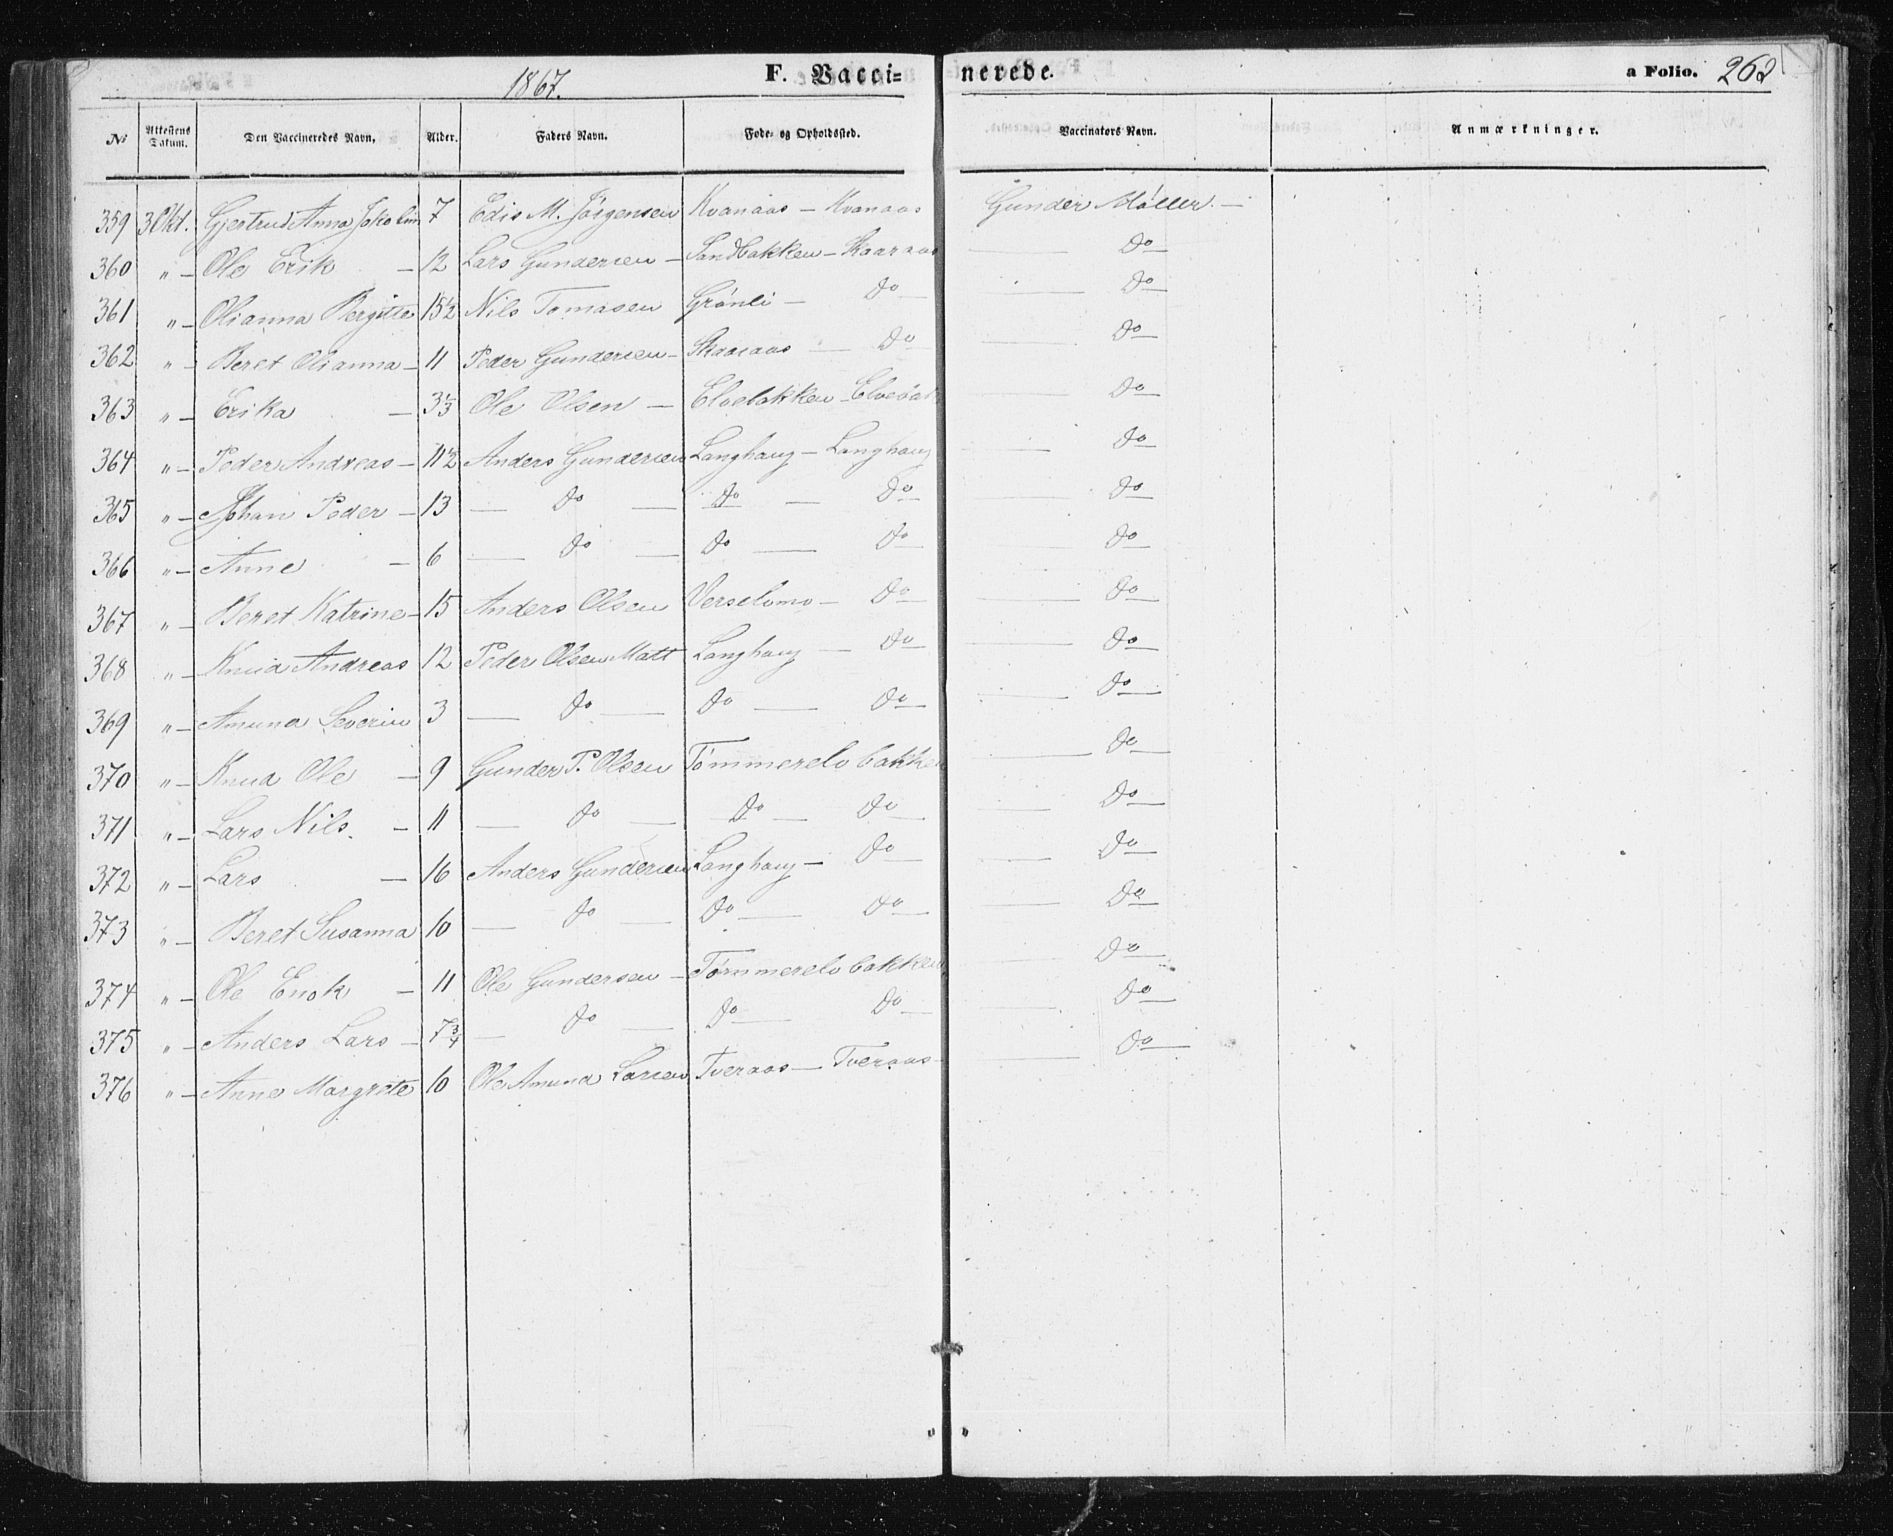 1867.
F. Vaccinerede.
a Folio. 263
No Attestens Datum. Den Vaccineredes Navn. Alder. Faders Navn. Føde- og Opholdssted. Vaccinators Navn. Anmærkninger.
359 3 Okt. Gjertrud Anna Jakobin 7 Edis M. Jørgensen Kvanaas — Kvanaas Gunder Møller —
360 " — Ole Erik — 12 Lars Gundersen — Sandbakken — Skaaraas — do —
361 " — Olianna Bergitte 15½ Nils Tomasen Grønli — do — — do —
362 " — Beret Olianna — 11 Peder Gundersen — Skaaraas — do — do —
363 " — Erika — 3⅓ Ole Olsen — Elvebakken — — do —
364 " — Peder Andreas — 11½ Anders Gundersen Langhaug — Langhaug — do —
365 " — Johan Peder — 13 — do — do — do — do —
366 " — Anne — 6 — do — do — do — do —
367 " — Beret Katrine — 15 Anders Olsen Verselvmo — do — — do —
368 " — Knud Andreas 12 Peder Olsen Matt Langhaug — do — — do —
369 " — Amund Severin 3 — do — do — do — — do —
370 " — Knud Ole — 9 Gunder P. Olsen Tømmerelvbakken — do —
371 " — Lars Nils. — 11 — do — do — do — — do —
372 " — Lars — 16 Anders Gundersen Langhaug — do — — do —
373 " — Beret Susanna 10 — do — do — do — — do —
374 " — Ole Enok — 11 Ole Gundersen — Tømmerelvbakken — do —
375 " — Anders Lars — 7¾ — do — do — do — — do —
376 " — Anne Margrete 10 Ole Amund Larsen Tveraas — Tveraas — — do —